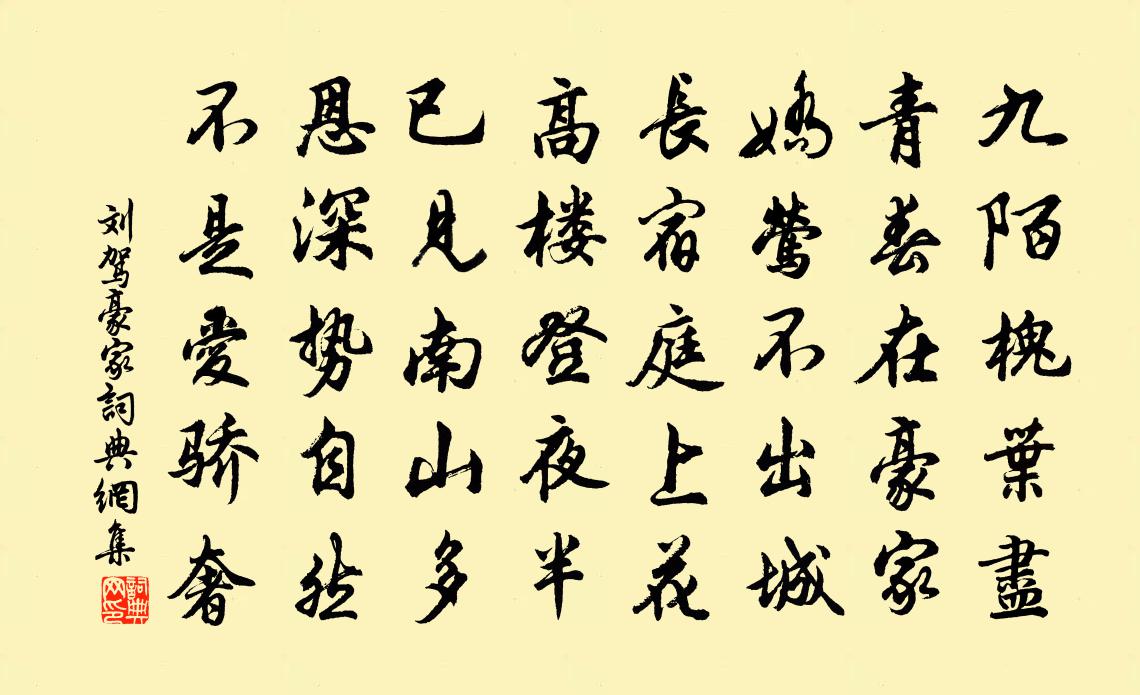 九陌槐葉盡
青春在豪家
嬌鶯不出城
長宿庭上花
高楼登夜半
已見南山多
恩深势自然
不是愛骄奢
刘駕豪家詞典網集
詞典
网印